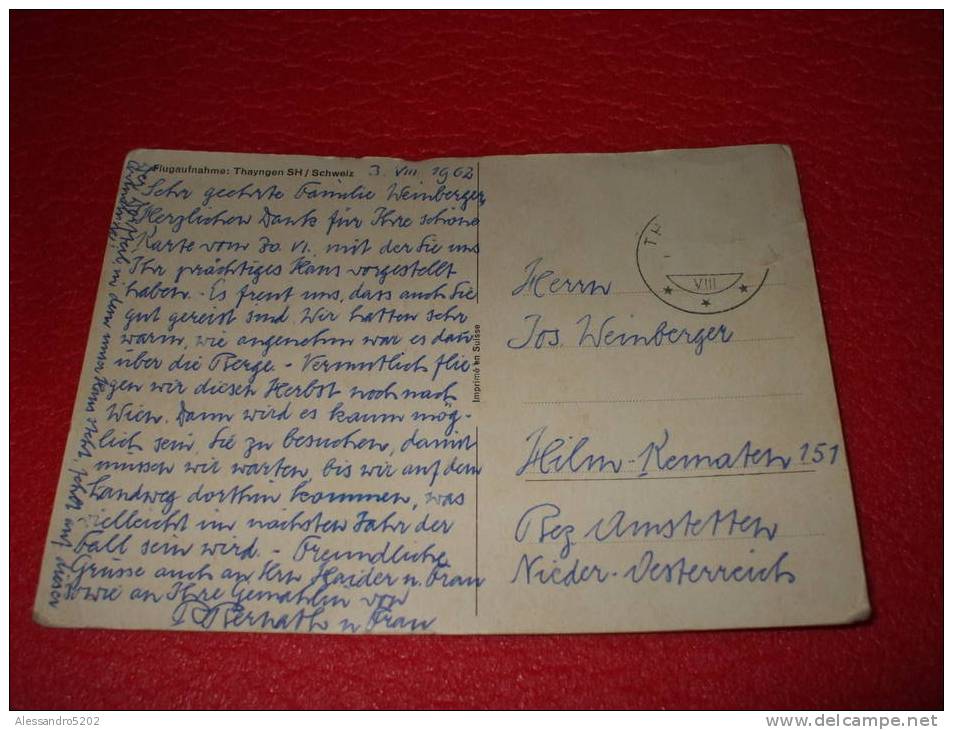 Flugaufnahme: Thayngen SH / Schweiz
3. VIII. 1962
Sehr geehrte Familie Weinberger
Herzlichen Dank für Ihre schöne
Karte vom 30. VI. mit der Sie uns
Ihr prächtiges Haus vorgestellt
haben. - Es freut uns, dass auch Sie
gut gereist sind. Wir hatten sehr
warm, wie angenehm war es dann
über die Berge. - Vermutlich flie-
gen wir diesen Herbst noch nach
Wien. Dann wird es kaum mög-
lich sein, Sie zu besuchen, damit
müssen wir warten, bis wir auf dem
Landweg dorthin kommen, was
vielleicht im nächsten Jahr der
Fall sein wird. - Freundliche
Grüsse auch an Hrn Haider u. Frau
sowie an Ihre Gemahlin von
Bernath u Frau
Imprimé en Suisse
TH
VIII
Herrn
Jos. Weinberger
Hilm-Kematen 151
Bez Amstetten
Nieder-Oesterreich
Alessandro5202
www.delcampe.net